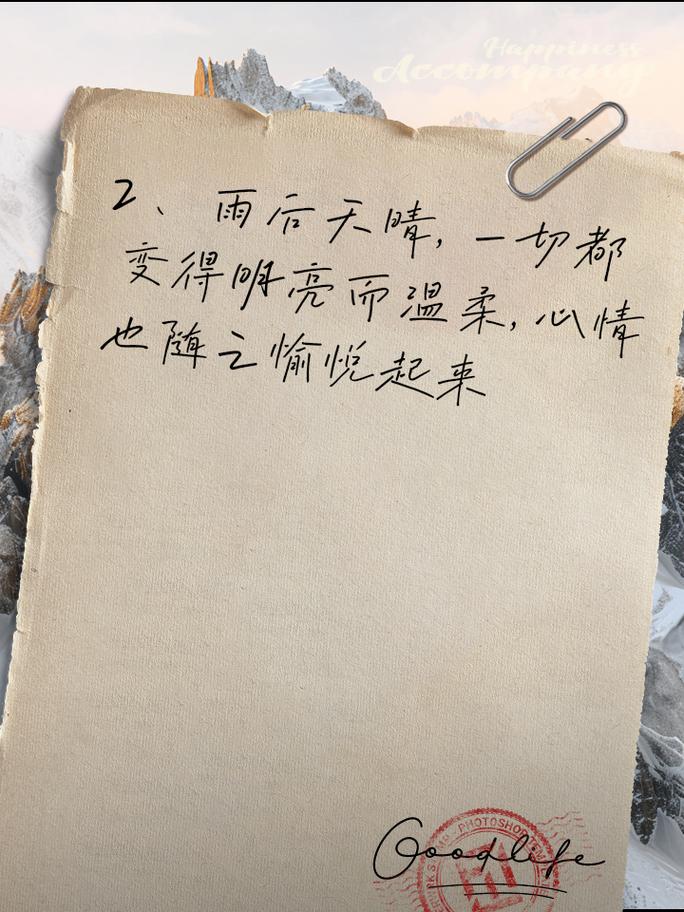 Happiness
Accompany
2、雨后天晴，一切都
变得明亮而温柔，心情
也随之愉悦起来
PHOTOSHOP
Goodlife